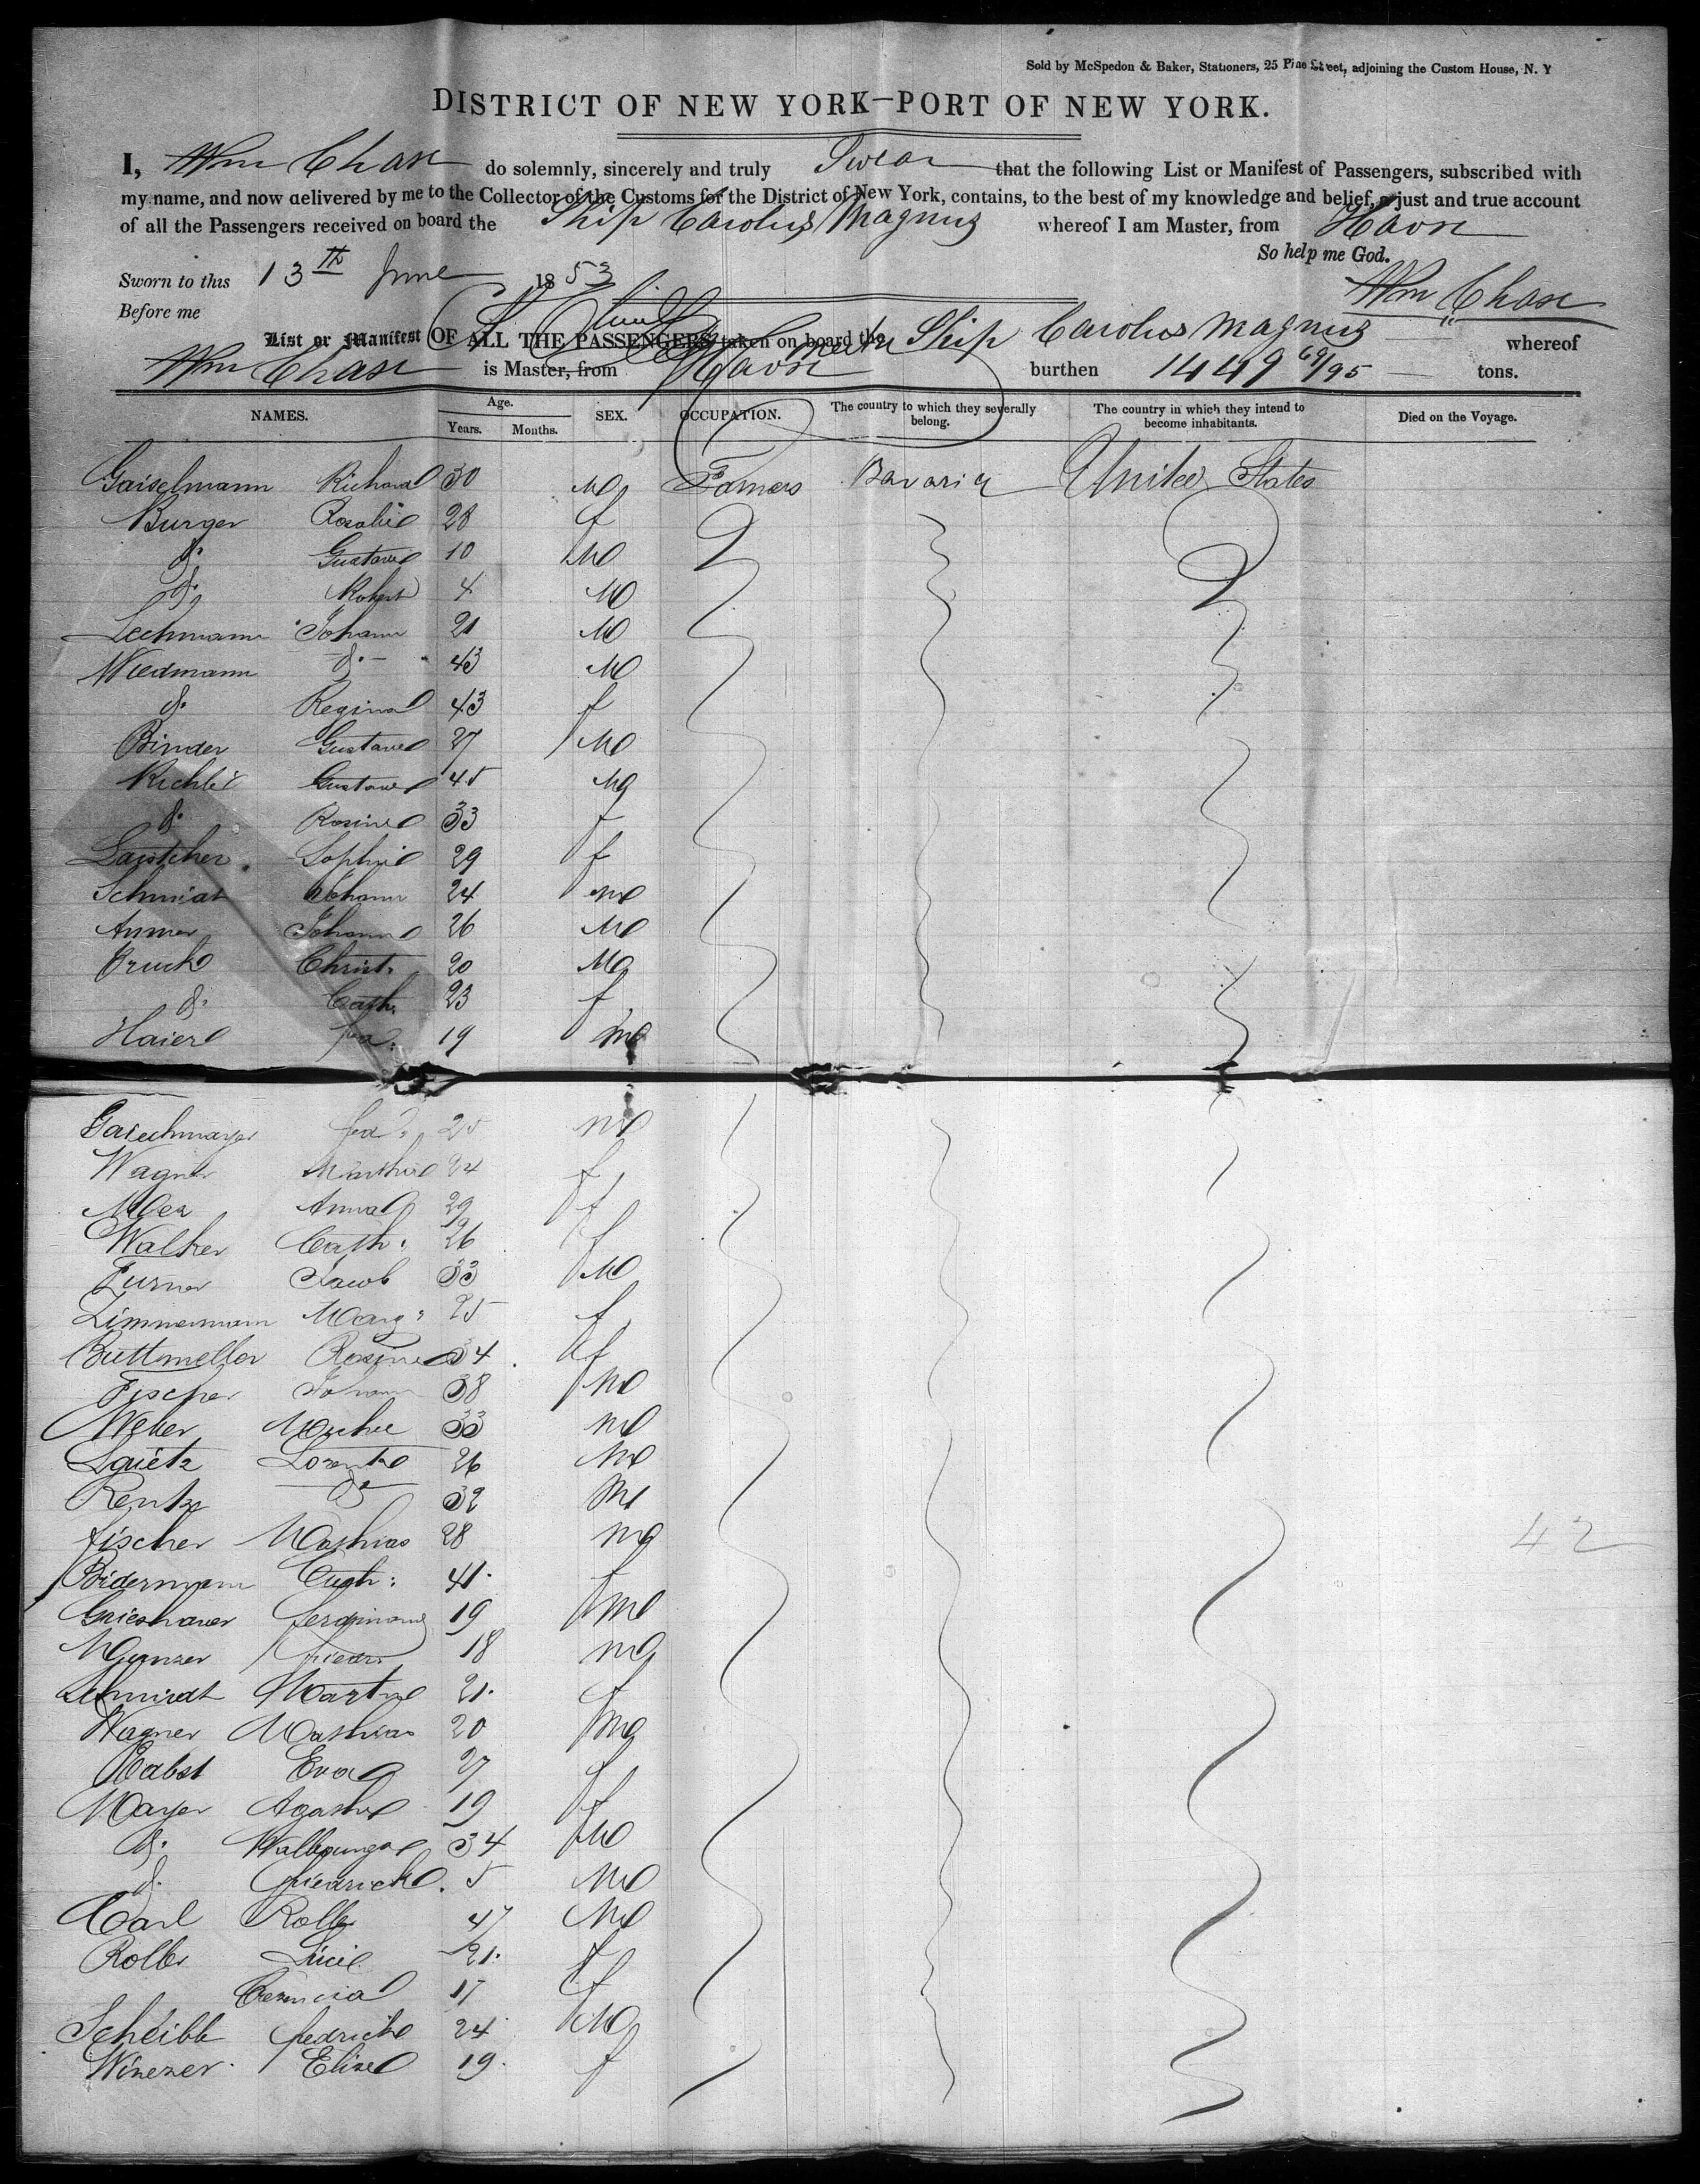 Sold by McSpedon & Baker, Stationers, 25 Pine Street, adjoining the Custom House, N. Y
DISTRICT OF NEW YORK—PORT OF NEW YORK.
I, Wm Chase do solemnly, sincerely and truly Swear that the following List or Manifest of Passengers, subscribed with
my name, and now delivered by me to the Collector of the Customs for the District of New York, contains, to the best of my knowledge and belief, a just and true account
of all the Passengers received on board the Ship Carolus Magnus whereof I am Master, from Havre
So help me God.
Sworn to this 13th June 1853 Wm Chase
Before me
List or Manifest OF ALL THE PASSENGERS taken on board the Ship Carolus Magnus whereof
Wm Chase is Master, from Havre burthen 1449 69/95 tons.
NAMES. Age. Years. Months. SEX. OCCUPATION. The country to which they severally belong. The country in which they intend to become inhabitants. Died on the Voyage.
Gaiselmann Richard 30 M Farmers Bavaria United States
Burger Rosalie 28 f
do. Gustave 10 M
do. Robert 4 M
Lechmann Johann 21 M
Wiedmann do. 43 M
do. Regina 43 f
Binder Gustave 27 M
Gustave 45 M
do. Rosine 33 f
Sophie 29 f
Schmidt Johann 24 M
Johann 26 M
Christ. 20 M
do. Cath. 23 f
Haierl 19 M
25 M
Wagner 24 f
Anna 29 f
Walker Cath. 26 f
Jacob 33 M
Zimmermann Marg. 25 f
Buttmeller Rosine 34 f
Fischer Johann 38 M
Weber 33 M
Lorentz 26 M
Rentz do. 32 M
fischer Mathias 28 M
Bidermann Cath. 41. f
Grieshaver ferdinand 19 M
18 M
Schmidt Martine 21. f
Wagner Mathias 20 M
Pabst Eva 27 f
Mayer Agathe 19 f
do. Walbourga 34 M
do. friedrich. 5 M
Carl Rolb 47 M
Rolb Lucie 21. f
Crescencia 17 f
Scheibb fredrich 24 M
Winezer Elise 19. f
42